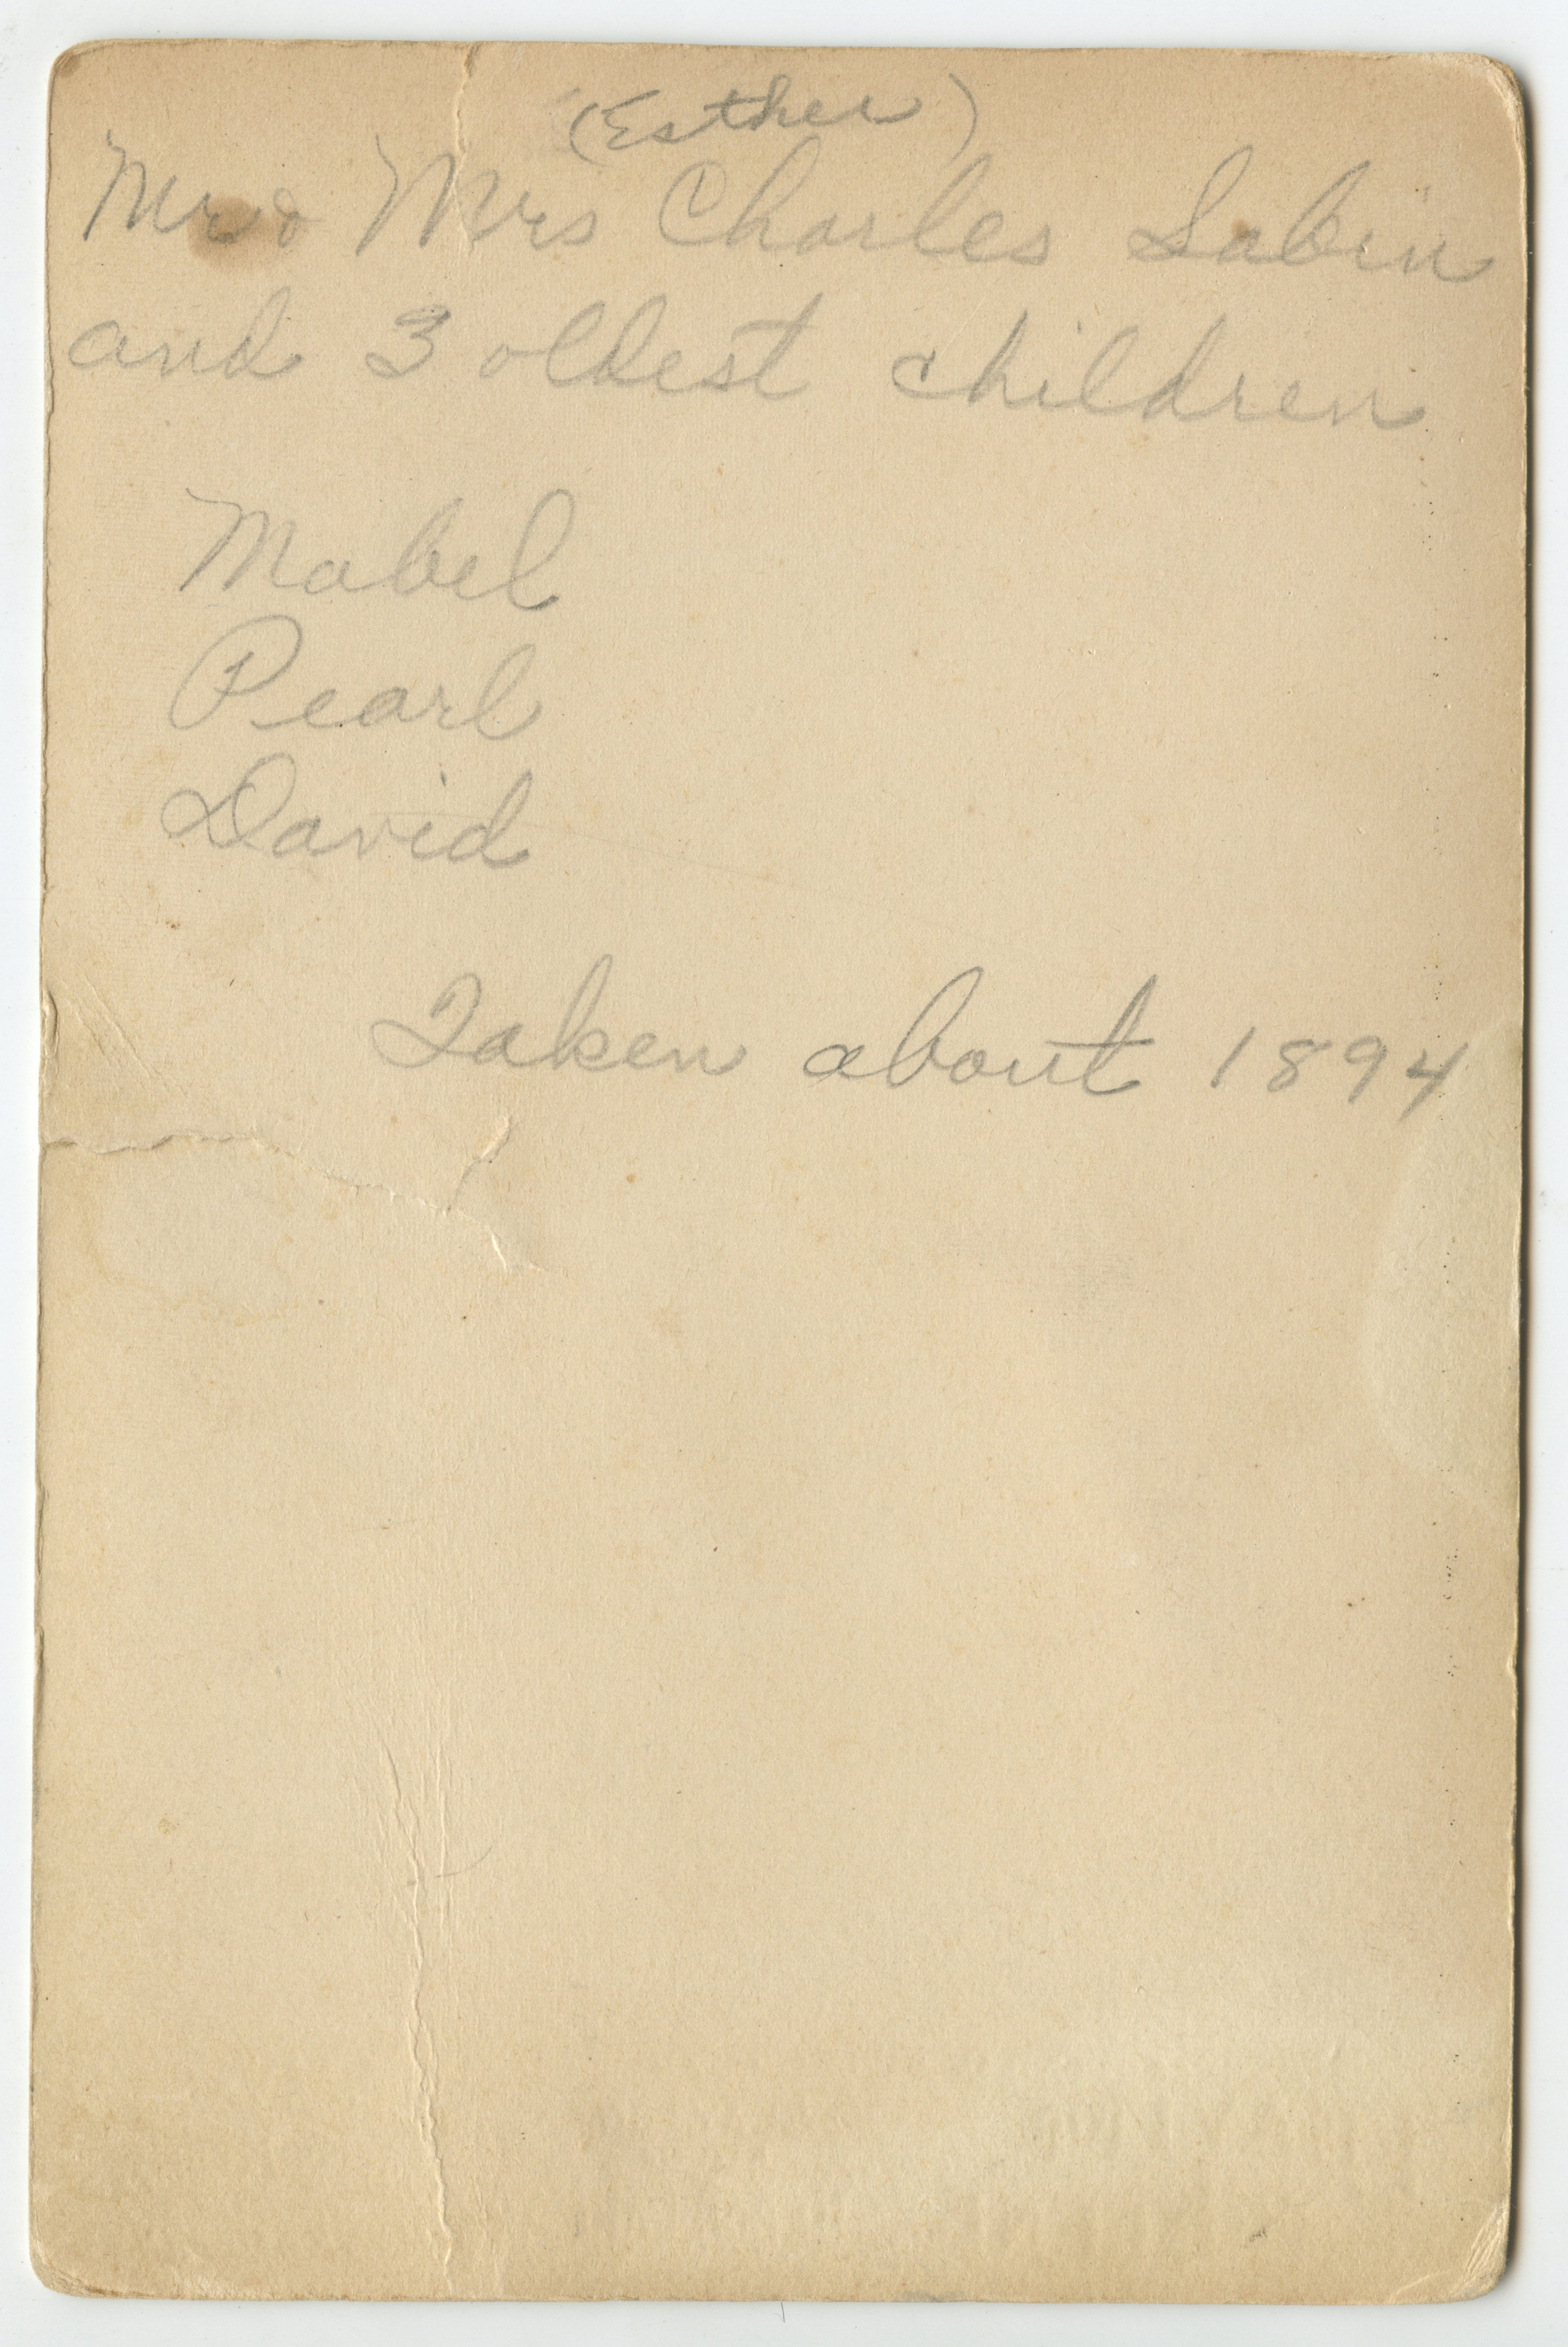 (Esther)
Mr & Mrs Charles Sabin
and 3 oldest children
Mabel
Pearl
David
Taken about 1894